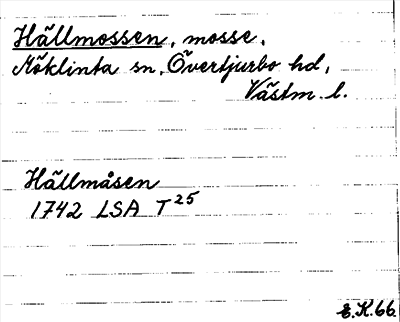 Hällmossen, mosse,
Möklinta sn, Övertjurbo hd,
Västm. l.
Hällmåsen
1742 LSA T²⁵
E.K.66.